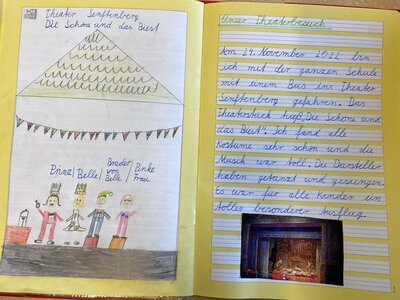 Theater Senftenberg
Die Schöne und das Biest
Prinz
Belle
Bruder
von
Belle
Pinke
Frau
Unser Theaterbesuch
Am 29. November 2022 bin
ich mit der ganzen Schule
mit einem Bus ins Theater
Senftenberg gefahren. Das
Theaterstück hieß „Die Schöne und
das Biest". Ich fand alle
Kostüme sehr schön und die
Musik war toll. Die Darsteller
haben getanzt und gesungen.
Es war für alle Kinder ein
toller besonderer Ausflug.